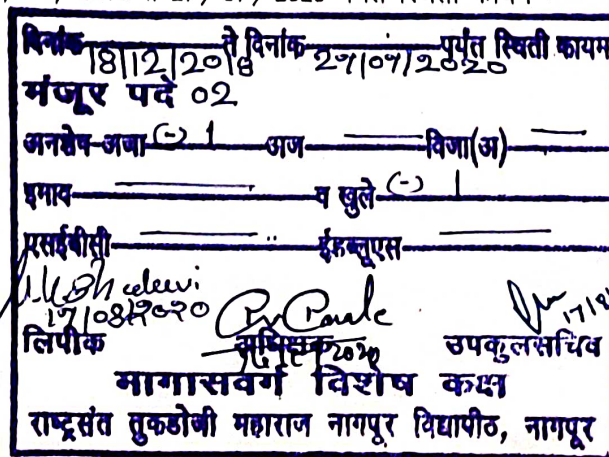 दिनांक 18/12/2018 ते दिनांक 27/07/2020 पर्यंत स्थिती कायम
मंजूर पदे 02
अनशेष-अजा (-) 1 अज विजा(अ)
इमाव व खुले (-) 1
एसईबीसी ईडब्लूएस
17/08/2020
लिपीक अधिक्षक उपकुलसचिव
मागासवर्ग विशेष कक्ष
राष्ट्रसंत तुकडोजी महाराज नागपूर विद्यापीठ, नागपूर